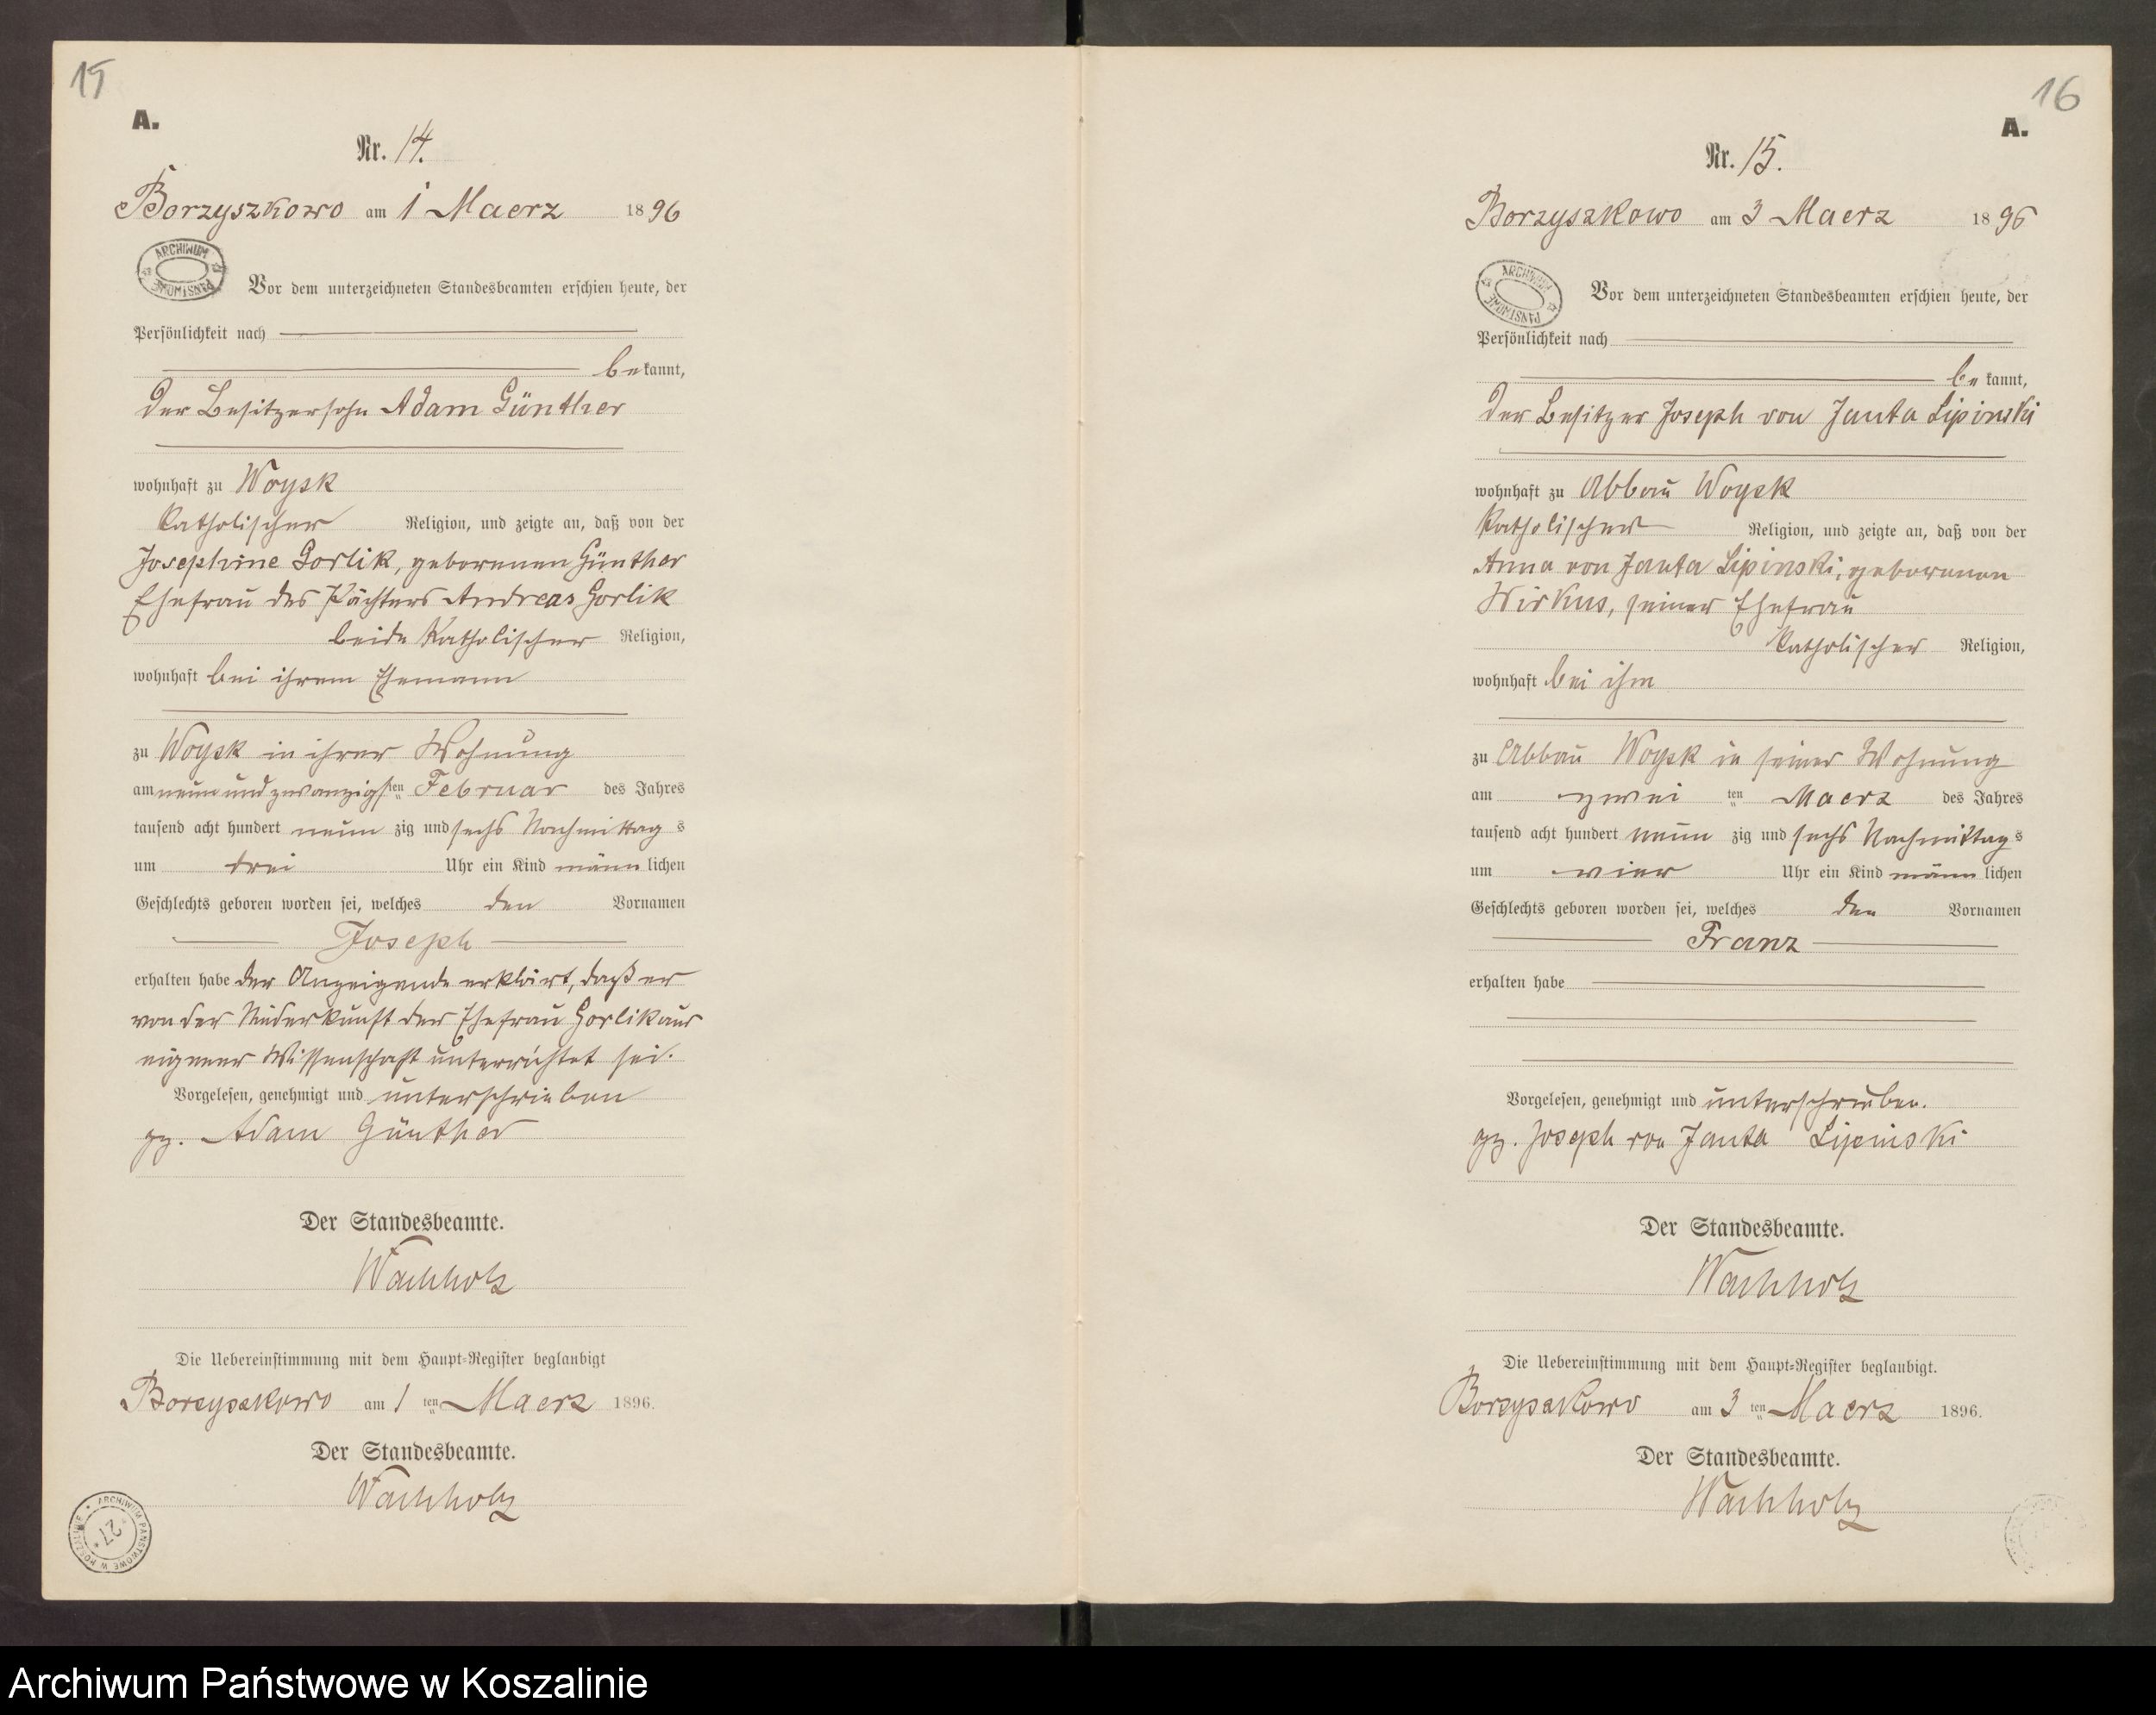 15
A.
Nr. 14.
Borzyszkowo am 1 Maerz 1896
ARCHIWUM PAŃSTWOWE
Vor dem unterzeichneten Standesbeamten erschien heute, der
Persönlichkeit nach
bekannt,
der Besitzersohn Adam Günther
wohnhaft zu Woysk
katholischer Religion, und zeigte an, daß von der
Josephine Gorlik, geborenen Günther
Ehefrau des Pächters Andreas Gorlik
beide katholischer Religion,
wohnhaft bei ihrem Ehemann
zu Woysk in ihrer Wohnung
am neunundzwanzigsten Februar des Jahres
tausend acht hundert neun zig und sechs Nachmittags
um drei Uhr ein Kind männlichen
Geschlechts geboren worden sei, welches den Vornamen
Joseph
erhalten habe der Anzeigende erklärt, daß er
von der Niederkunft der Ehefrau Gorlik aus
eigener Wissenschaft unterrichtet sei.
Vorgelesen, genehmigt und unterschrieben
gz. Adam Günther
Der Standesbeamte.
Wachholz
Die Uebereinstimmung mit dem Haupt-Register beglaubigt
Borzyszkowo am 1ten Maerz 1896.
Der Standesbeamte.
Wachholz
ARCHIWUM PAŃSTWOWE W KOSZALINIE
* 27 *
16
A.
Nr. 15.
Borzyszkowo am 3 Maerz 1896
ARCHIWUM PAŃSTWOWE
Vor dem unterzeichneten Standesbeamten erschien heute, der
Persönlichkeit nach
bekannt,
der Besitzer Joseph von Janta Lipinski
wohnhaft zu Abbau Woysk
katholischer Religion, und zeigte an, daß von der
Anna von Janta Lipinski, geborenen
Wirkus, seiner Ehefrau
katholischer Religion,
wohnhaft bei ihm
zu Abbau Woysk in seiner Wohnung
am zwei ten Maerz des Jahres
tausend acht hundert neun zig und sechs Nachmittags
um vier Uhr ein Kind männlichen
Geschlechts geboren worden sei, welches den Vornamen
Franz
erhalten habe
Vorgelesen, genehmigt und unterschrieben.
gz. Joseph von Janta Lipinski
Der Standesbeamte.
Wachholz
Die Uebereinstimmung mit dem Haupt-Register beglaubigt.
Borzyszkowo am 3ten Maerz 1896.
Der Standesbeamte.
Wachholz
Archiwum Państwowe w Koszalinie